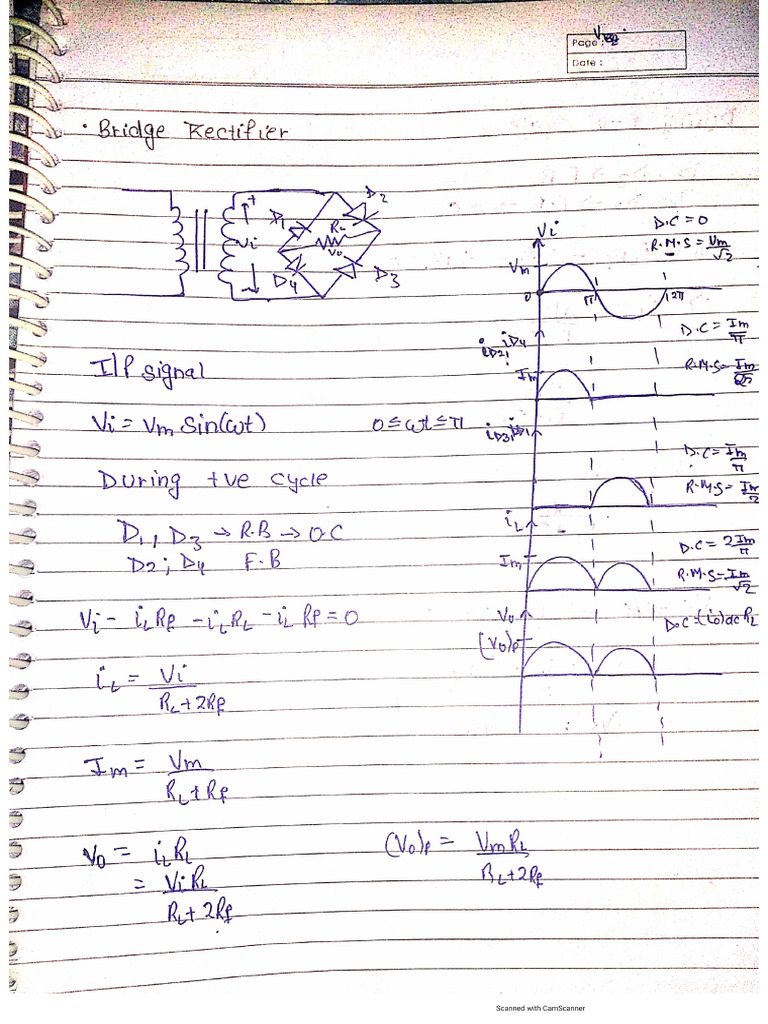 Page :
Date :
• Bridge Rectifier
D2
D1
RL
Vi
Vo
D4
D3
+
-
Vi
D.C = 0
R.M.S = Vm/√2
Vm
0
π
2π
D.C = Im/π
iD2, iD4
R.M.S = Im/2
Im
iD3, iD1
D.C = Im/π
R.M.S = Im/2
iL
D.C = 2Im/π
Im
R.M.S = Im/√2
Vo
(Vo)p
D.C = (io)dc RL
I/P signal
Vi = Vm Sin(ωt) 0 ≤ ωt ≤ π
During +ve cycle
D1, D3 → R.B → O.C
D2; D4 F.B
Vi - iLRf - iLRL - iL Rf = 0
iL = Vi/(RL + 2Rf)
Im = Vm/(RL + Rf)
Vo = iLRL
= ViRL/(RL + 2Rf)
(Vo)p = VmRL/(RL + 2Rf)
Scanned with CamScanner